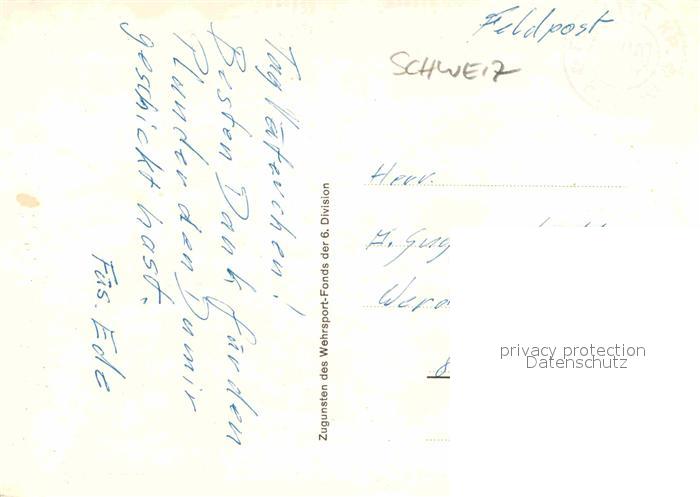 Feldpost
SCHWEIZ
Tag Väterchen!
Besten Dank für den
Plunder den Du mir
geschickt hast.
Füs. Ede
Zugunsten des Wehrsport-Fonds der 6. Division
Herr.
privacy protection
Datenschutz